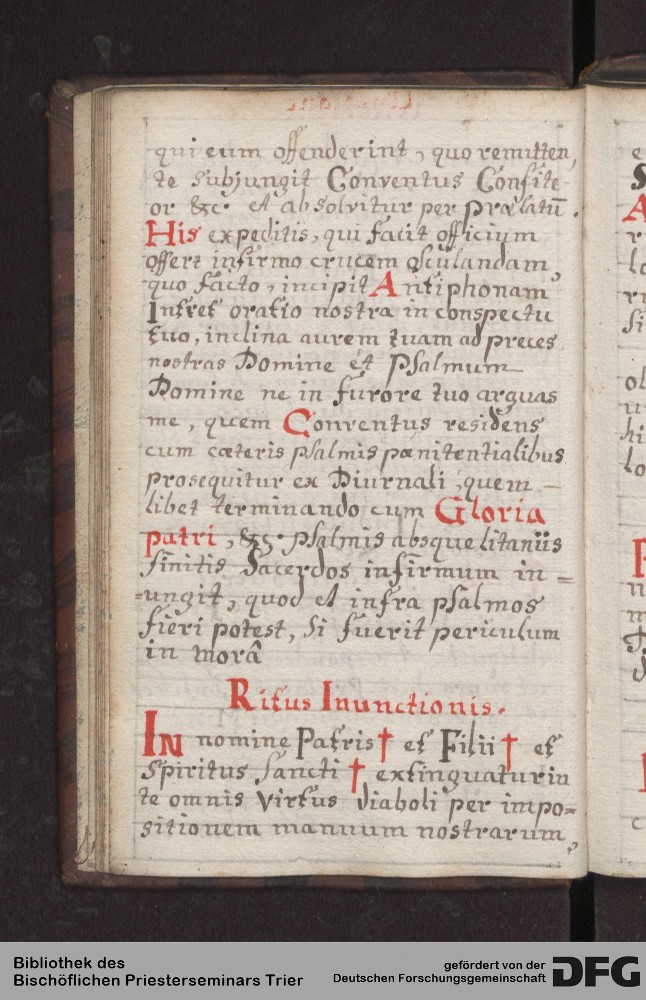 qui eum offenderint, quo remitten,
te subjungit Conventus Confite
or &c. et absolvitur per Prælatū.
His expeditis, qui facit officium
offert infirmo crucem osculandam,
quo facto, incipit Antiphonam
Intret oratio nostra in conspectu
tuo, inclina aurem tuam ad preces
nostras Domine et Psalmum
Domine ne in furore tuo arguas
me, quem Conventus residens
cum cæteris psalmis pænitentialibus
prosequitur ex Diurnali, quem –
libet terminando cum Gloria
patri, &c. psalmis absque litaniis
finitis Sacerdos infirmum in =
=ungit, quod et infra psalmos
fieri potest, si fuerit periculum
in morâ
Ritus Inunctionis.
In nomine Patris † et Filii † et
Spiritus Sancti † extinguatur in
te omnis virtus diaboli per impo=
sitionem manuum nostrarum,
Bibliothek des
Bischöflichen Priesterseminars Trier
gefördert von der
Deutschen Forschungsgemeinschaft
DFG